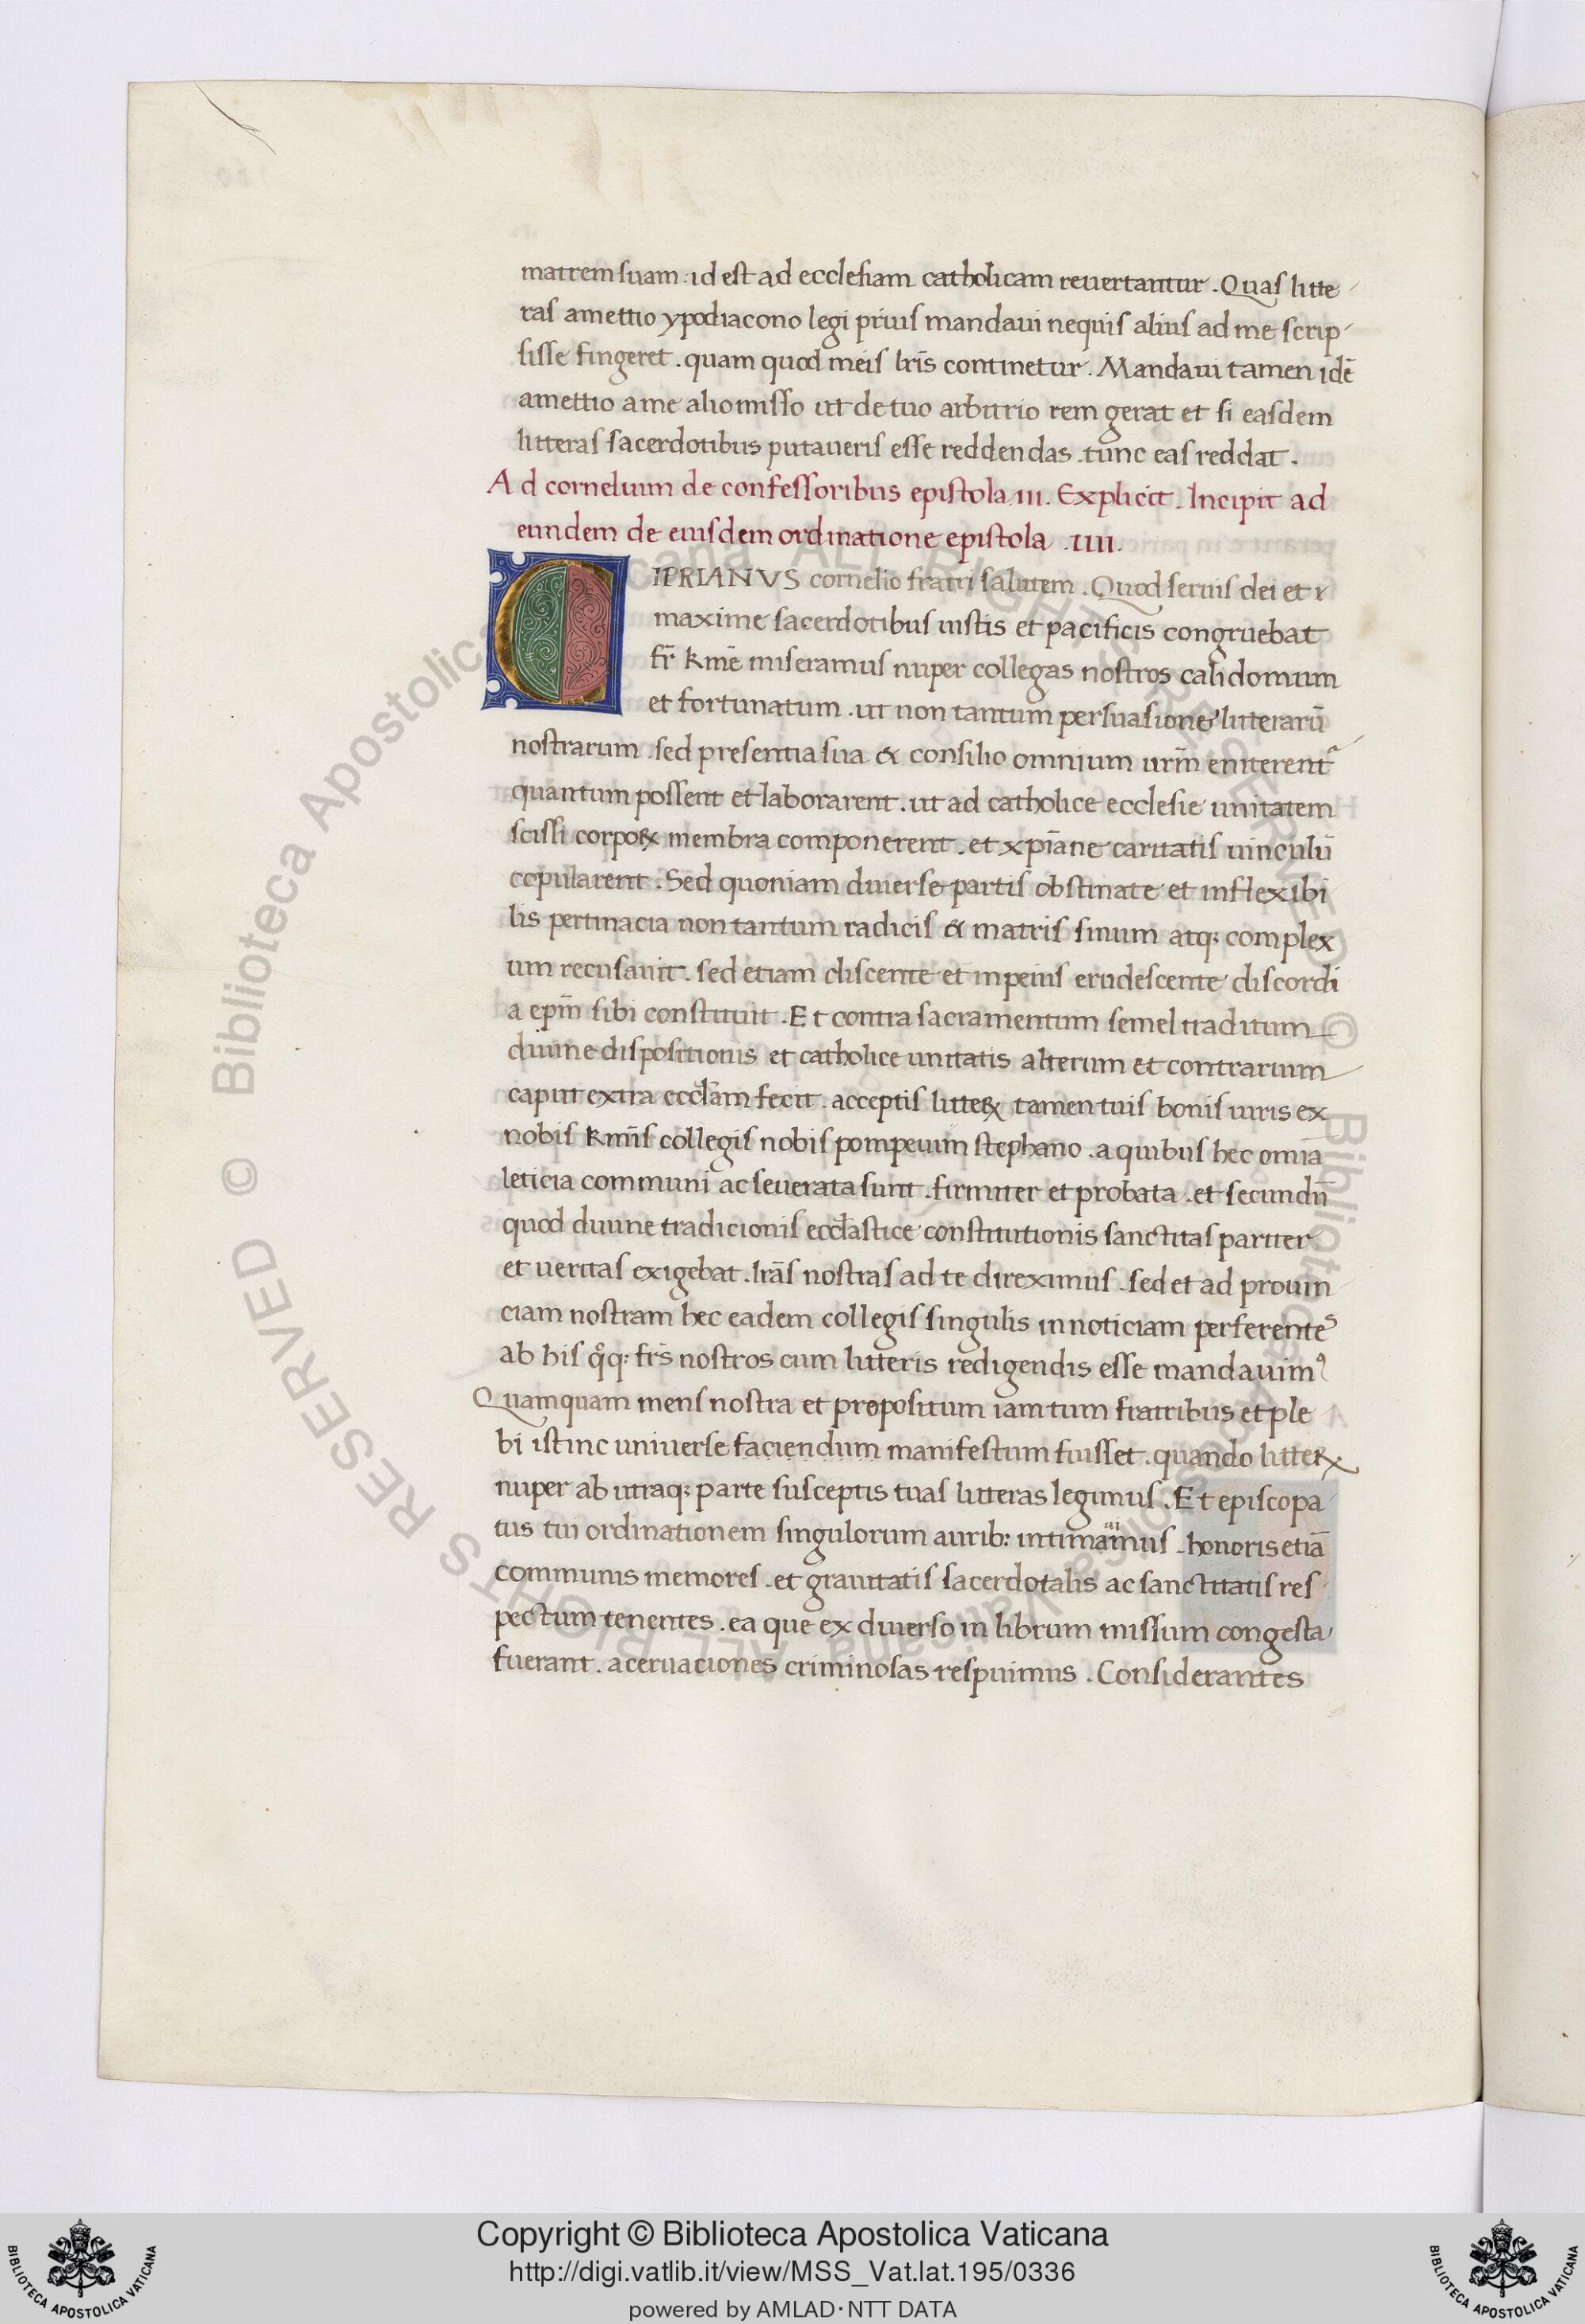 matrem suam. id est ad ecclesiam catholicam reuertantur. Quas litte
ras amettio ypodiacono legi prius mandaui nequis alius ad me scrip
sisse fingeret. quam quod meis lr̄is continetur. Mandaui tamen idē
amettio a me alio misso ut de tuo arbitrio rem gerat et si easdem
litteras sacerdotibus putaueris esse reddendas. tunc eas reddat.
Ad cornelium de confessoribus epistola .III. Explicit. Incipit ad
eundem de eiusdem ordinatione epistola .IIII.
CIPRIANVS cornelio fratri salutem. Quod seruis dei et
maxime sacerdotibus iustis et pacificis congruebat
fr̄ km̄e miseramus nuper collegas nostros calidomum
et fortunatum. ut non tantum persuasione litterarū
nostrarum. sed presentia sua & consilio omnium ur̄m eniterent
quantum possent et laborarent. ut ad catholice ecclesie unitatem
scissi corpoꝝ membra componerent. et xp̄iane caritatis uinculū
copularent. Sed quoniam diuerse partis obstinate et inflexibi
lis pertinacia non tantum radicis & matris sinum atq; complex
um recusauit. sed etiam discente et inpeius erudescente discordi
a ep̄m sibi constituit. Et contra sacramentum semel traditum
diuine dispositionis et catholice unitatis alterum et contrarium
caput extra eccl̄am fecit. acceptis litteꝝ tamen tuis bonis uiris ex
nobis km̄is collegis nobis pompeium stephano. a quibus hec omīa
leticia communi ac seuerata sunt. firmiter et probata. et secundū
quod diuine tradicionis eccl̄astice constitutionis sanctitas pariter
et ueritas exigebat. lr̄as nostras ad te direximus. sed et ad prouin
ciam nostram hec eadem collegis singulis in noticiam perferentes
ab his qͦq; fr̄s nostros cum litteris redigendis esse mandauimꝰ
Quamquam mens nostra et propositum iam tum fratribus et ple
bi istinc uniuerse faciendum manifestum fuisset. quando litteꝝ
nuper ab utraq; parte susceptis tuas litteras legimus. Et episcopa
tus tui ordinationem singulorum aurib; intimauimus. honoris etiā
communis memores. et grauitatis sacerdotalis ac sanctitatis res
pectum tenentes. ea que ex diuerso in librum missum congesta
fuerant. aceruaciones criminosas respuimus. Considerantes
© Biblioteca Apostolica Vaticana ALL RIGHTS RESERVED © Biblioteca Apostolica Vaticana ALL RIGHTS RESERVED
Copyright © Biblioteca Apostolica Vaticana
http://digi.vatlib.it/view/MSS_Vat.lat.195/0336
powered by AMLAD·NTT DATA
BIBLIOTECA APOSTOLICA VATICANA
BIBLIOTECA APOSTOLICA VATICANA